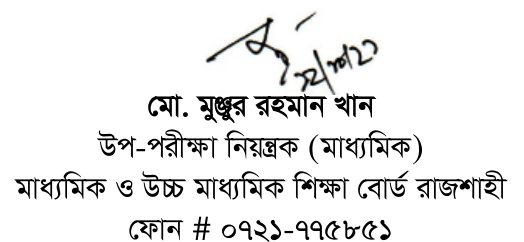 ১২/১০/২১
মো. মুঞ্জুর রহমান খান
উপ-পরীক্ষা নিয়ন্ত্রক (মাধ্যমিক)
মাধ্যমিক ও উচ্চ মাধ্যমিক শিক্ষা বোর্ড রাজশাহী
ফোন # ০৭২১-৭৭৫৮৫১